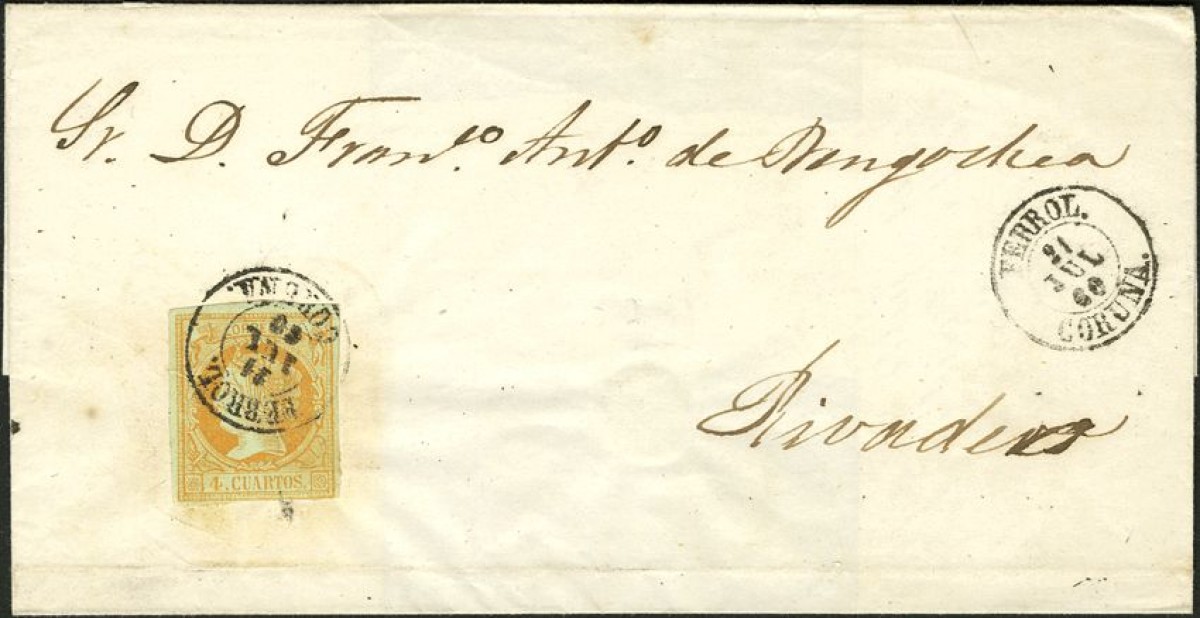 Sr. D. Franco. Anto. de Bengochea
FERROL.
21
JUL
60
CORUÑA.
FERROL.
21
JUL
60
CORUÑA.
4. CUARTOS.
Rivadeo